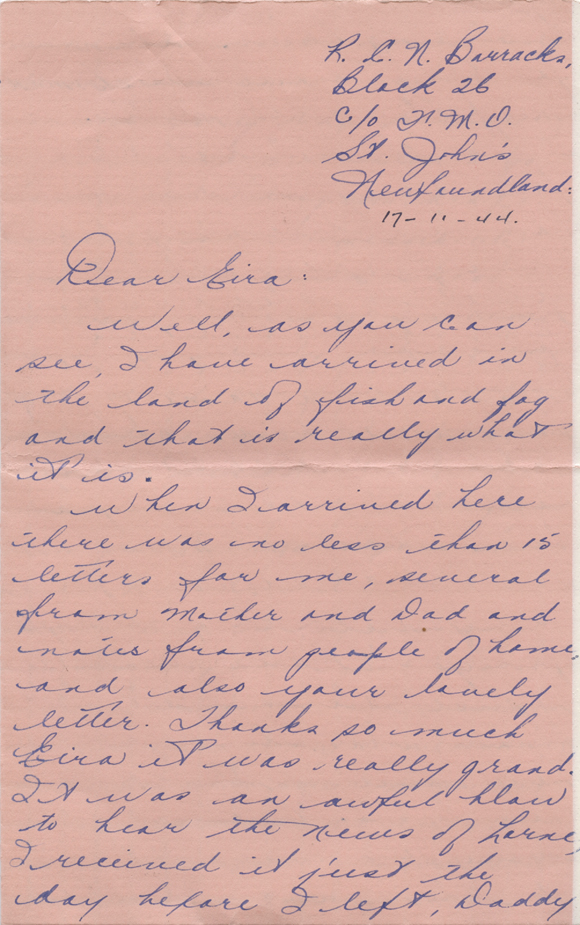 R. C. N. Barracks,
Block 26
c/o F. M. O.
St. John's
Newfoundland:
17-11-44.
Dear Eira:
Well, as you can
see, I have arrived in
the land of fish and fog
and that is really what
it is.
When I arrived here
there was no less than 15
letters for me, several
from Mother and Dad and
notes from people of home,
and also your lovely
letter. Thanks so much
Eira it was really grand.
It was an awful blow
to hear the news of Lorne,
I received it just the
day before I left, Daddy